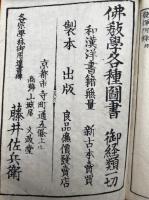 佛敎學各種圖書 御經類一切
和漢洋書籍無量 新古本賣買
製本 出版 良品廉價發賣店
京都市寺町通五條上ル
高野山城居 文政堂
各宗學林御用達書肆
藤井佐兵衛